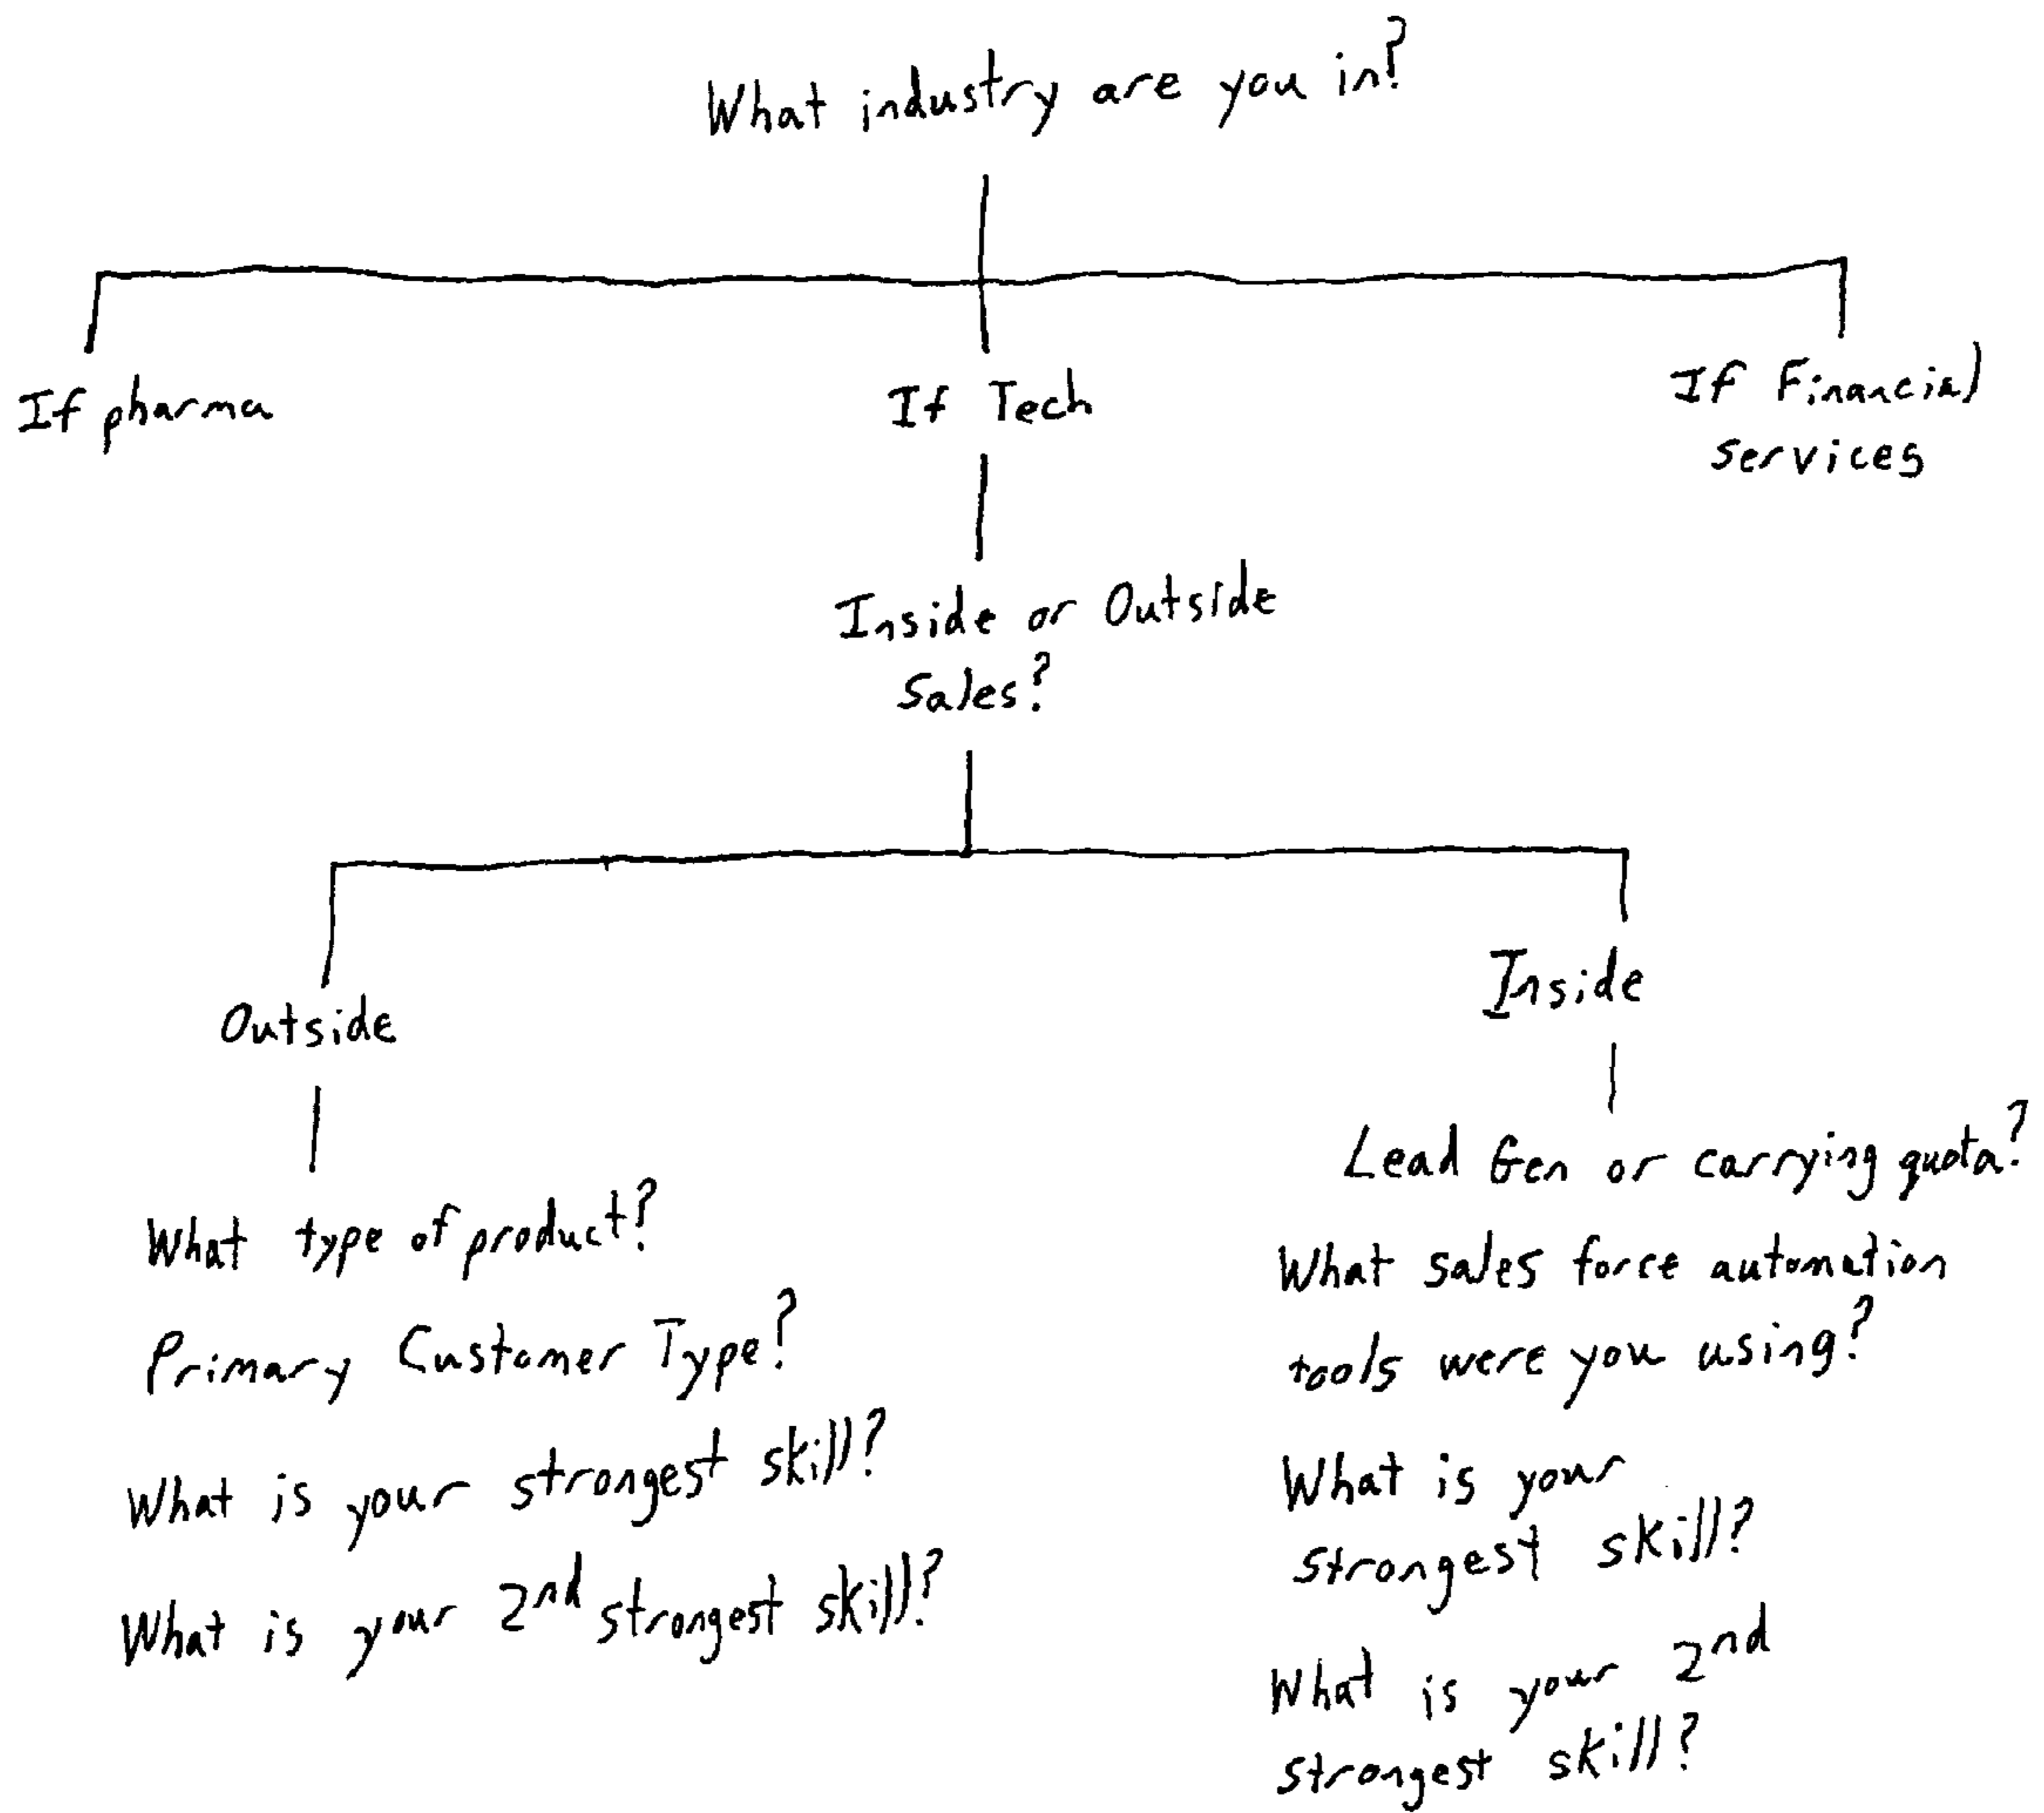 What industry are you in?
If pharma
If Tech
If Financial
services
Inside or Outside
Sales?
Outside
What type of product?
Primary Customer Type?
What is your strongest skill?
What is your 2nd strongest skill?
Inside
Lead Gen or carrying quota?
What sales force automation
tools were you using?
What is your
strongest skill?
What is your 2nd
strongest skill?